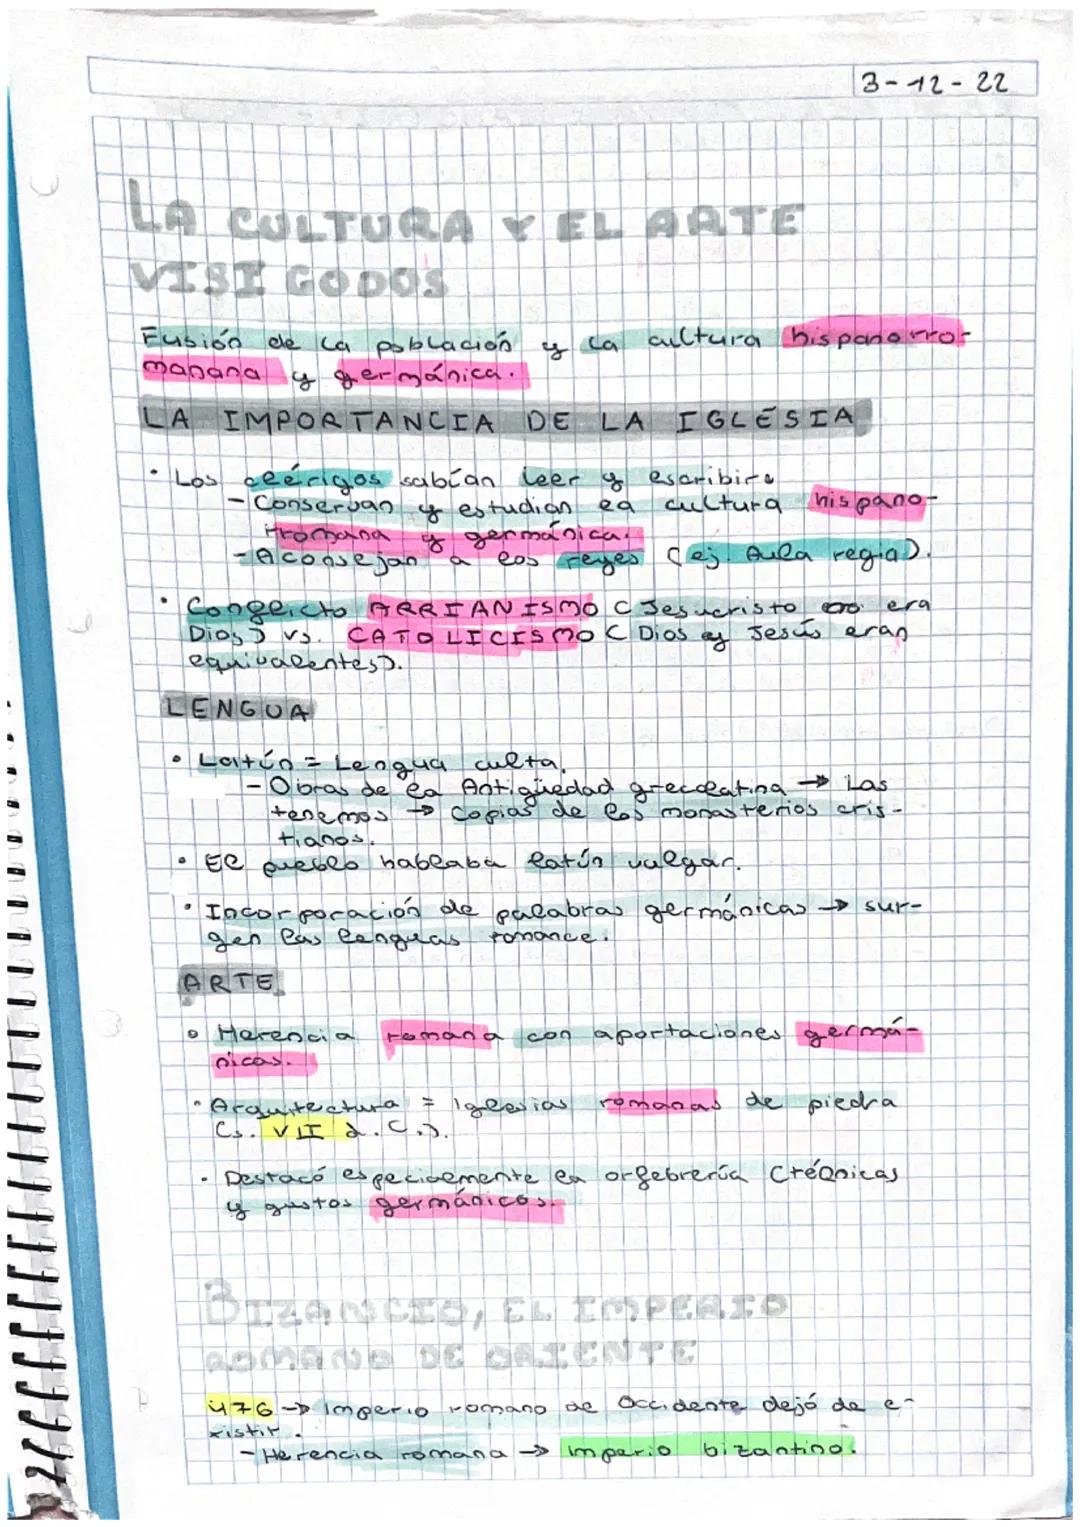 3-12-22
LA CULTURA Y EL ARTE
VISIGODOS
Fusión de la población y la cultura hispanorro-
manana y germánica.
LA IMPORTANCIA DE LA IGLESIA
• Los clérigos sabían leer y escribir.
- Conservan y estudian la cultura hispano-
rromana y germánica.
- Aconsejan a los reyes (ej. Aula regia).
• Conflicto ARRIANISMO (Jesucristo no era
Dios) vs. CATOLICISMO (Dios y Jesús eran
equivalentes).
LENGUA
• Latín = Lengua culta.
- Obras de la Antigüedad grecolatina → Las
tenemos → copias de los monasterios cris-
tianos.
• El pueblo hablaba latín vulgar.
• Incorporación de palabras germánicas → sur-
gen las lenguas romance.
ARTE
• Herencia romana con aportaciones germá-
nicas.
• Arquitectura = iglesias romanas de piedra
(s. VII d.C.).
• Destacó especialmente la orfebrería (técnicas
y gustos germánicos.
BIZANCIO, EL IMPERIO
ROMANO DE ORIENTE
476 → Imperio romano de Occidente dejó de e-
xistir.
- Herencia romana → imperio bizantino.